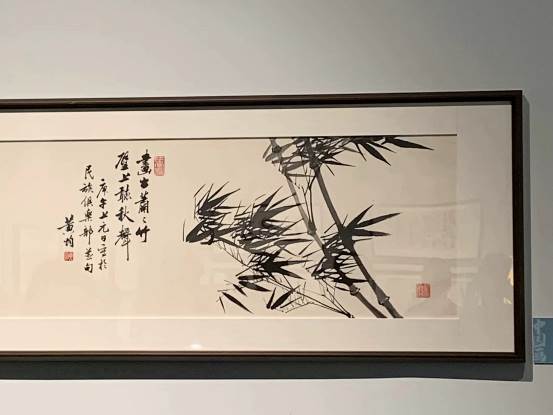 畫出蕭蕭竹
壁上聽秋聲
庚午上元日寫於
民族俱樂部並句
黃均